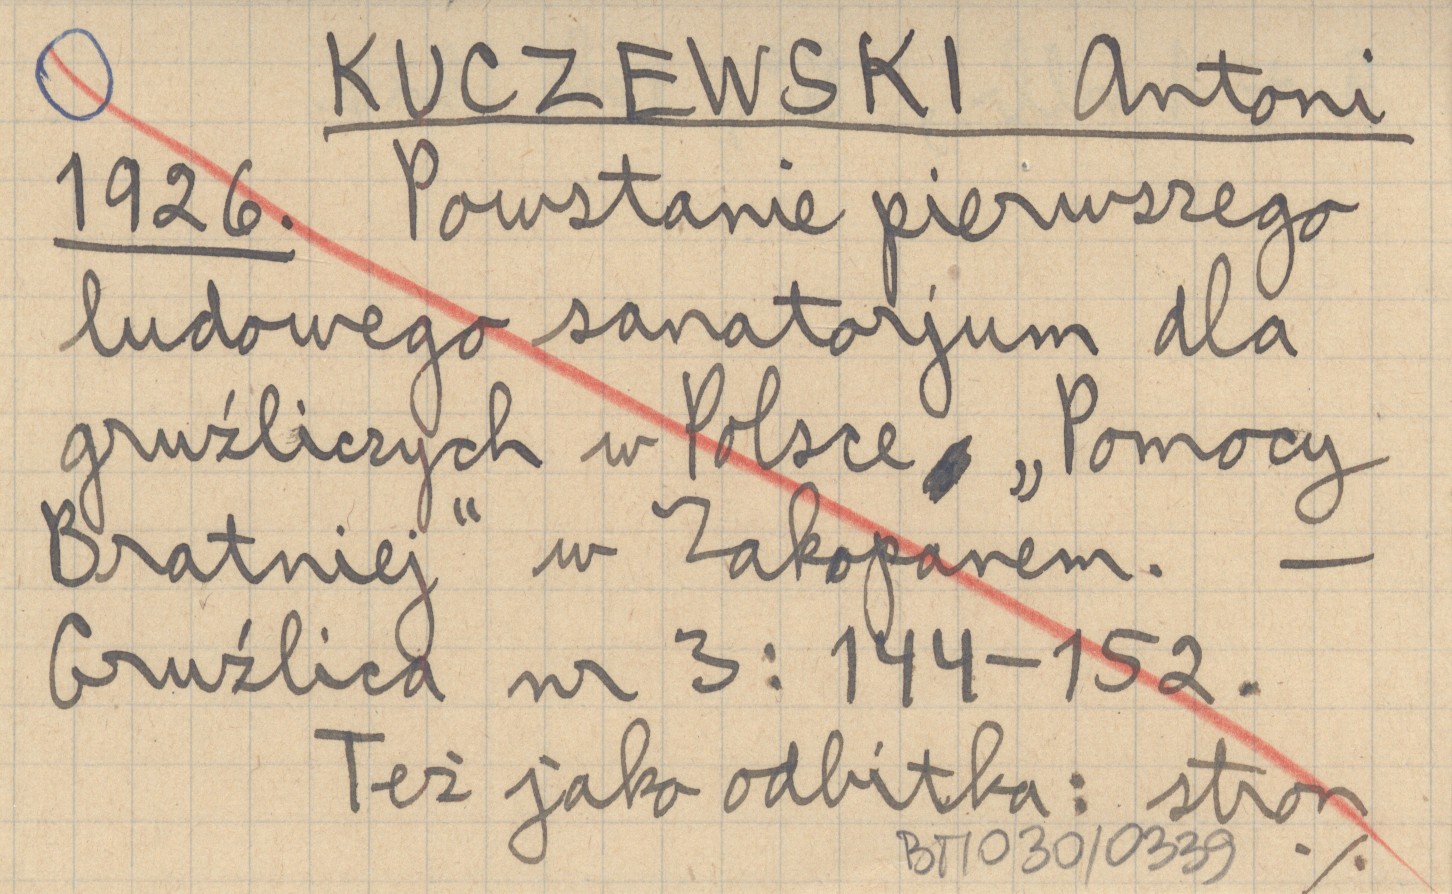 KUCZEWSKI Antoni
1926. Powstanie pierwszego
ludowego sanatorjum dla
gruźliczych w Polsce, „Pomocy
Bratniej" w Zakopanem. —
Gruźlica nr 3: 144-152.
Też jako odbitka: stron
BTΠ030/0339 ./.